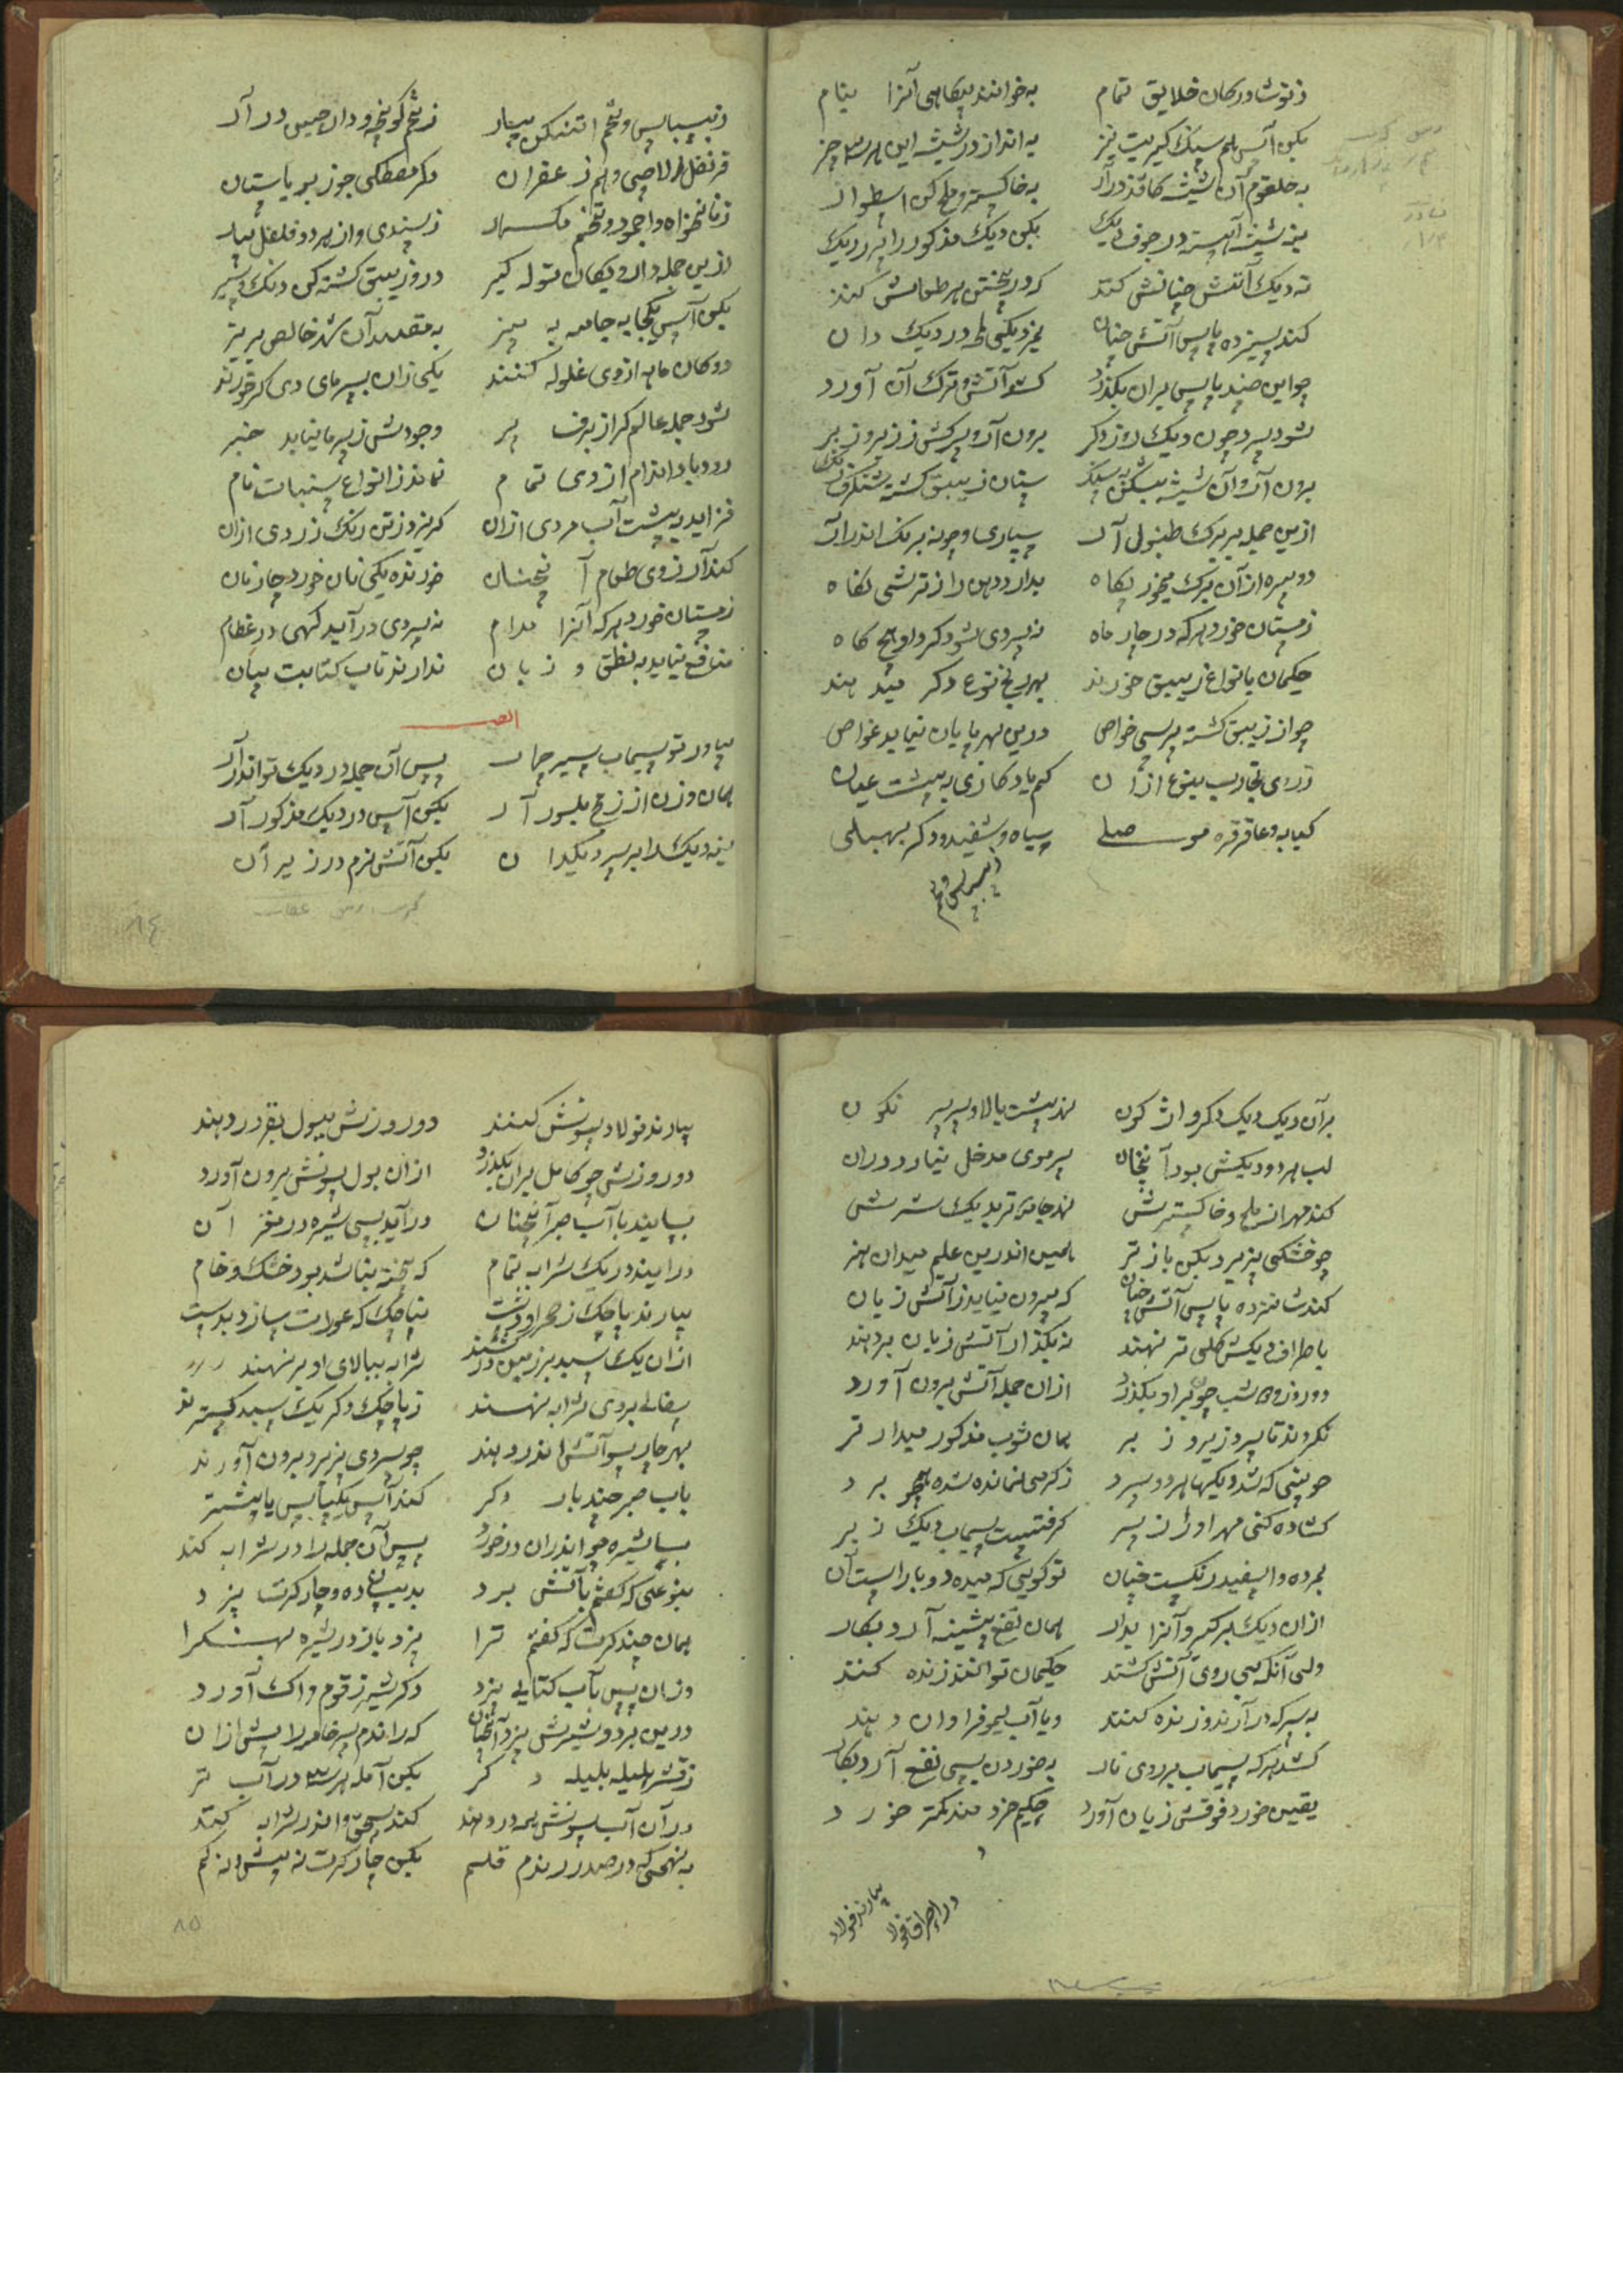 ز نوشادر کان خلایق تمام به خوانند پیکاهی آنرا بنام
بکن آس با هم سنک کبریت نیز به انداز در شیشه این هر سه چیز
به حلقوم آن شیشه کاغذ درآر به خاکستر و ملح کن استوار
بنه شیشه آهسته در جوف دیک بکن دیک مذکور را پر ز ریک
ته دیک آتش چنانش کنند که در پختن هر طعامش کنند
کند سیزده پاس آتش چنان
چو این چند پاس بران بگذرد کشو آتش و ترک آن آورد
شود سرد چون دیک روز دگر برون آر و برکش ز زیر و زبر
برون آر و آن شیشه بشکن به سنک ستان زیبق کشته شنکرف رنک
ازین جمله بر برک طنبول آر سپاری و چونه برنک اندر آر
دو بیره از آن برک میخور پکاه بدارد دهن را ز ترشی نگاه
زمستان خورد هر که در چار ماه نه پیری شود گرد او هیچ گاه
حکیمان بانواع زیبق خورند بهر نوع دکر میدهند
چو از زیبق کشته پرسی خواص درین بهر پایان نیابد غواص
ز روی تجارب بنوع از آن کم یاد کاری به پیشت عیان
کبابه و عاقرقره موصلی سیاه و سفید و دکر بهبلی
ز بسباس و تخم
ز بسباس و تخم اتنکن بیار ز تخم کونچه و دارچین در آر
قرنفل الاچی و هم زعفران دکر مصطکی جوز بر یاستان
ز نانخواه و اجمود و تخم ز سندی و از هر دو فلفل بیار
ازین جمله دارو یکان توله کیر در و زیبق کشته کن دنک و شیر
بکن آس یکجا به جامه به بیز به مقدار آن شهد خالص بریز
دو کان ماهه از وی غلوله کنند یکی زان بسرمای دی کر خورند
شود جمله عالم گر از برف پر وجودش ز سرما نیابد خبر
رود باد اندام از وی تمام نماند ز انواع سنبات نام
فزاید به پشت آب مردی ازان کریزد ز تن رنک زردی ازان
کند آرزوی طعام آنچنان خورنده یکی نان خورد چار نان
زمستان خورد هر که آنرا مدام نه پیری در آید کهی در عظام
منافع نیاید به نطق و زبان ندارند تاب کتابت بیان
ایضا
بیاور تو سیماب سیر چهار پس آن جمله در دیک تو اندر آر
همان وزن از زاج بلور آر بکن آس در دیک مذکور آر
بنه دیک را بر سر دیکدان بکن آتش نرم در زیر آن
۸۴
بر آن دیک دیک دکر واژکون نهد پشت بالا و بر سر نکون
لب هر دو دیکش بود آنچنان سر موی مدخل نیارد دران
کند مهر از ملح و خاکسترش نهد جامه تر بدیک سرش
چو خشکی پزیرد بکن باز تر همین اندرین علم میدان هنر
کند شانزده پاس آتش چنان که بیرون نیاید ز آتش زیان
باطراف دیکش کلی تر نهند نه بگذار آتش زیان بردهند
دو روز و شب چو بر او بگذرد ازان جمله آتش برون آورد
نکردند تا سرو زیر و زبر همان ثوب مذکور میدار تر
چو بینی که شد دیکها هر دو سرد ز کرمی نمانده شده همچو برد
کشاده کنی مهر او را ز سر کرفتست سیماب دیک زبر
بمرده و اسفید رنکست چنان تو کویی که میده دوباراست آن
ازان دیک برکیر و آنرا بدار همان نفع پیشینه آرد بکار
ولی آنکه بی روی آتش کشند حکیمان توانند زنده کنند
به سرکه در آرند و زنده کنند و یا آب لیمو فراوان دهند
کشد هر که سیماب بر روی نار به خوردن بسی نفع آرد بکار
یقین خورد فوقش زیان آورد حکیم خردمند کمتر خورد
در احراق فولاد
بیارند فولاد
بیارند فولاد سونش کنند دو روزش ببول بقر در دهند
دو روزش چو کامل بران بگذرد ازان بول سونش برون آورد
بسایند با آب صبر آنچنان در آید بسی شیره در مغز آن
درآیند در یک شرابه تمام که پخته نباشد بود خشک و خام
بیارند پاچک ز صحرا و دشت نه پاچک که عورات سازد بدست
ازان یک سبد بر زمین در نهند شرابه ببالای او بر نهند
سفالی بروی شرابه نهند ز پاچک دکر یک سبد کسترند
بهر چار سو آتش اندر دهند چو سردی پزیرد برون آورند
باب صبر چند بار دکر کند آس یکپاس یا بیشتر
بسا شیره چو اندران در خورد پس آن جمله را در شرابه کند
بنوعی که کفتم باتش برد بدینسان ده و چار کرت پزد
همان چند کرت که کفتم ترا پزد باز در شیره بهنکرا
و زان پس بآب کتایی پزد دکر شیر زقوم و اک آورد
درین هر دو شیرش پزد آنچنان که راندم سر خامه را پیش ازان
ز قشر هلیله بلیله دکر بکن آمله هر سه در آب تر
در آن آب سونش همه در دهند کند سحق و اندر شرابه کند
به نهجی که در صدر راندم قلم بکن چار کرت نه بیش و نه کم
۸۵